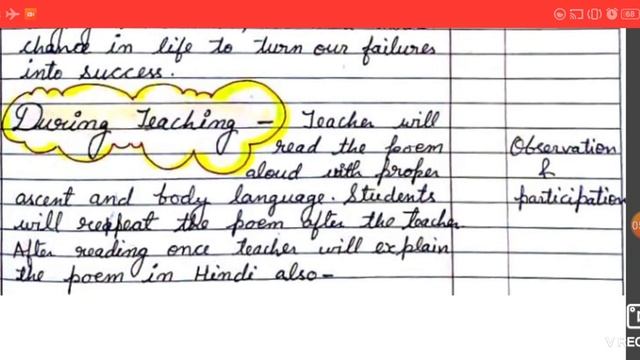 chance in life to turn our failures
into success.
During Teaching - Teacher will
read the poem
aloud with proper
ascent and body language. Students
will reapeat the poem after the teacher.
After reading once teacher will explain
the poem in Hindi also-
Observation
&
participation
68
VREC